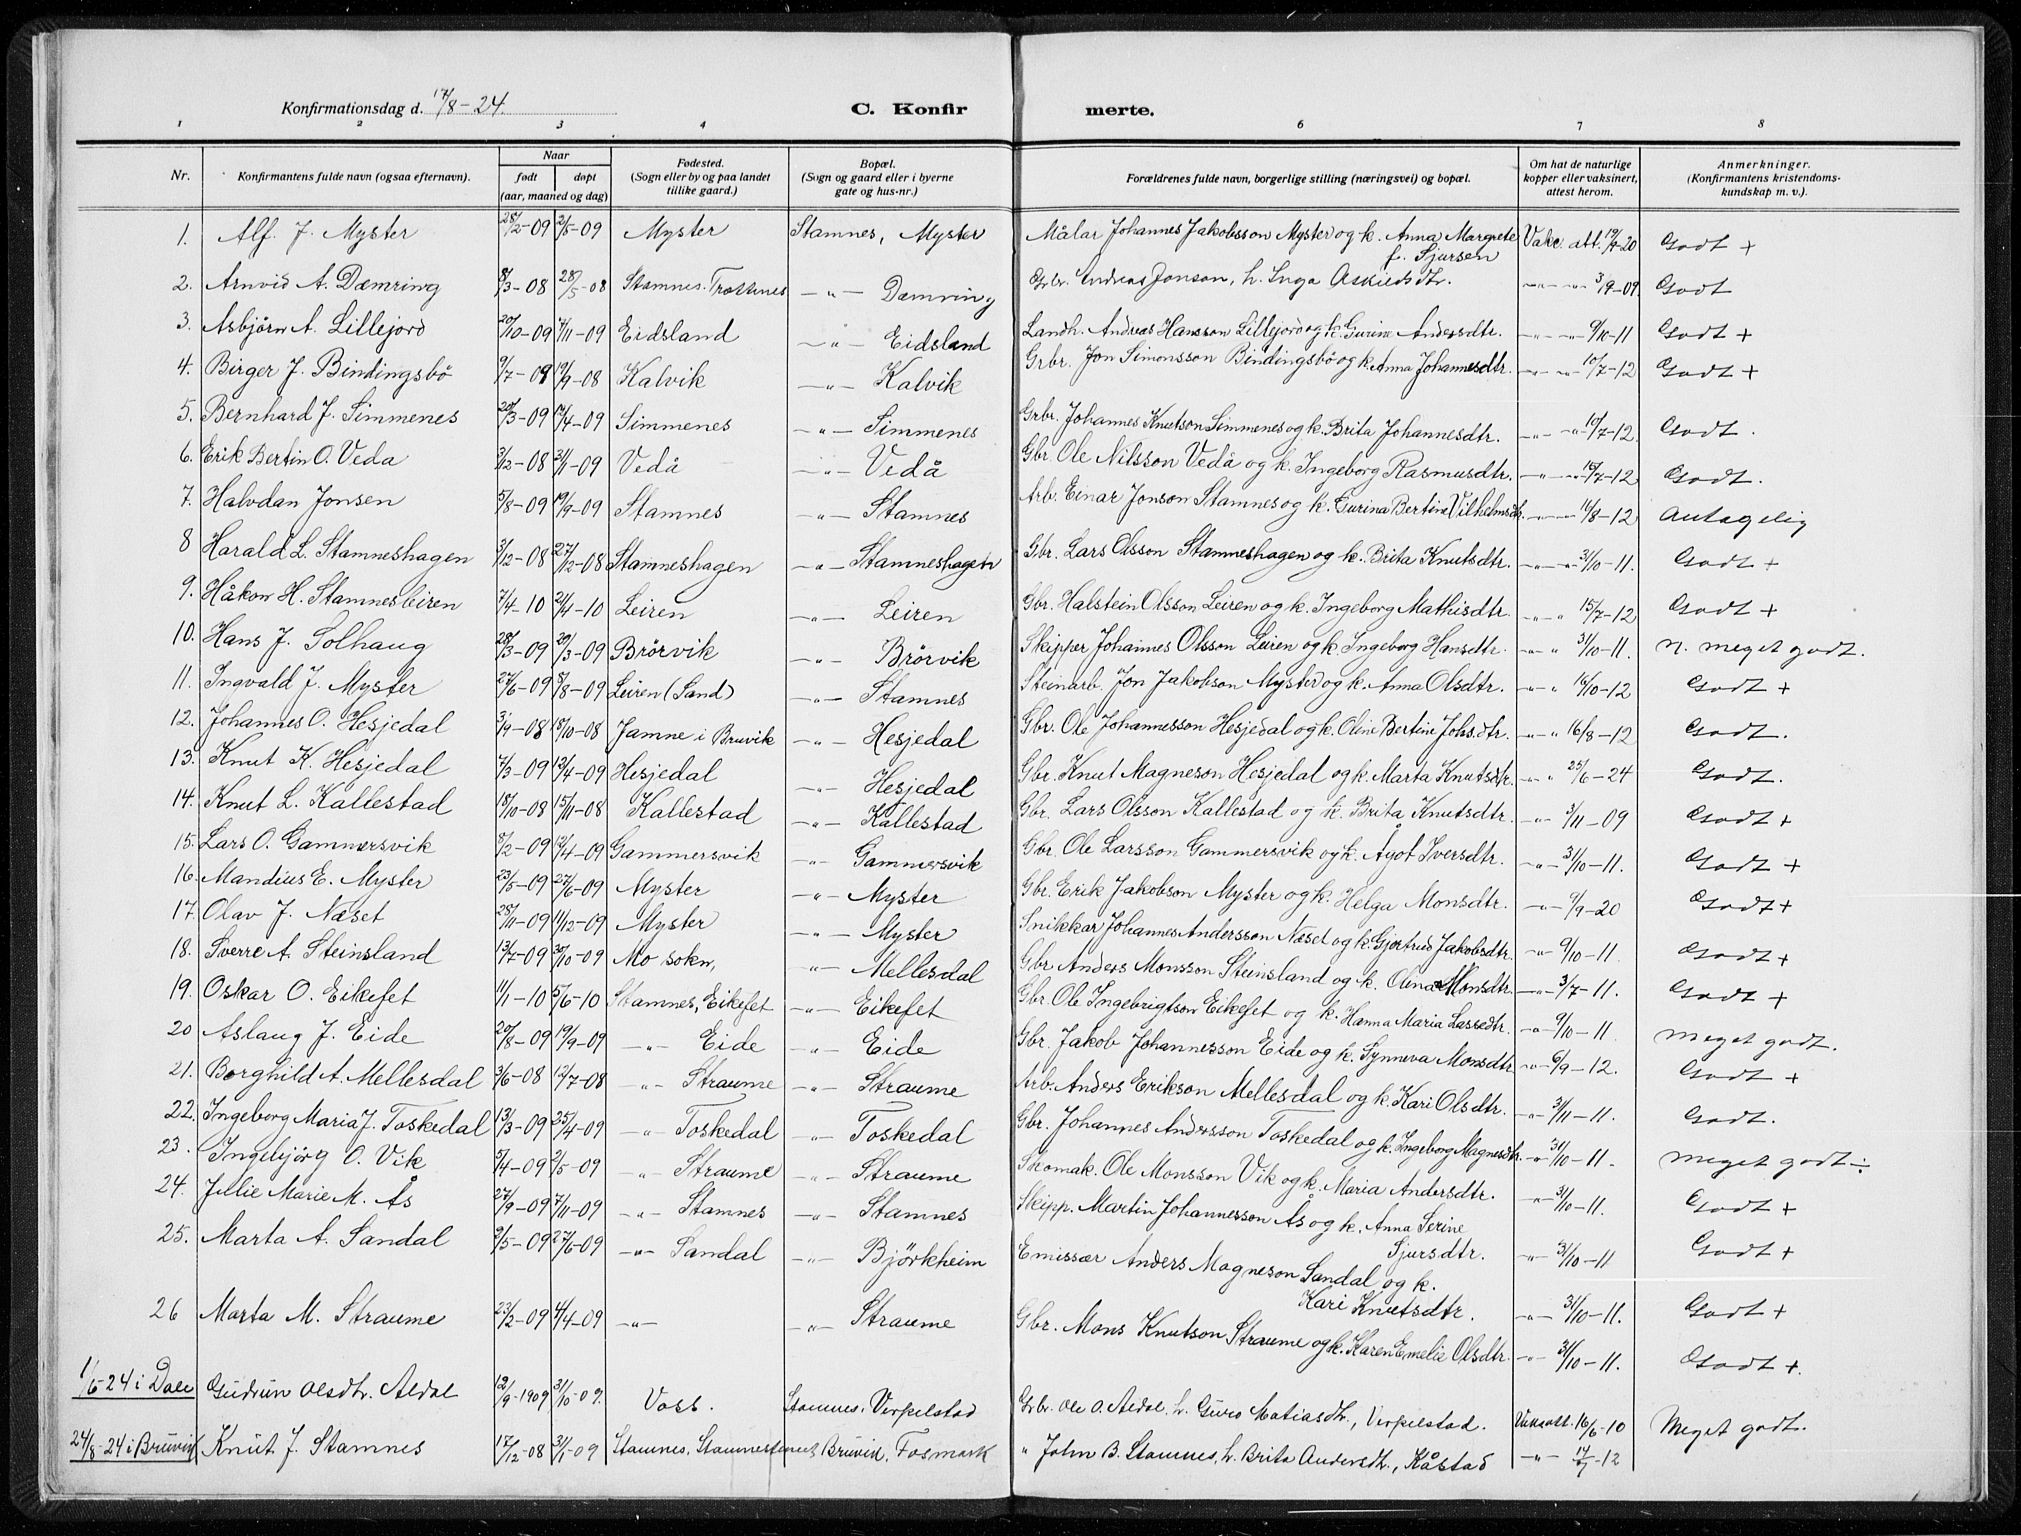 Konfirmationsdag d. 17/8-24. C. Konfirmerte.
1 2 3 4 5 6 7 8
Nr. Konfirmantens fulde navn (ogsaa efternavn). Naar født døpt (aar, maaned og dag) Fødested. (Sogn eller by og paa landet tillike gaard.) Bopæl. (Sogn og gaard eller i byerne gate og hus-nr.) Forældrenes fulde navn, borgerlige stilling (næringsvei) og bopæl. Om hat de naturlige kopper eller vaksinert, attest herom. Anmerkninger. (Konfirmantens kristendomskundskap m. v.).
1. Alf J. Myster 28/2-09 2/5-09 Myster Stamnes, Myster Målar Johannes Jakobsson Myster og k. Anna Margrete f. Sjursen Vakc. att. 19/4-20 Godt +
2. Arnvid A. Dæmring 8/3-08 28/5-08 Stamnes. Trottnes -"- Dæmring Grbr. Andreas Jonson, h. Inga Askieldsdtr. -"- -"- 3/9-09. Godt
3. Asbjörn A. Lillejord 20/10-09 7/11-09 Eidsland -"- Eidsland Landh. Andreas Hansson Lillejord og k. Gurine Andersdtr. -"- -"- 9/10-11 Godt +
4. Birger J. Bindingsbö 9/7-08 19/9-08 Kalvik -"- Kalvik Grbr. Jon Simonsson Bindingsbö og k. Anna Johannesdtr. -"- -"- 10/7-12 Godt +
5. Bernhard J. Simmenes 20/3-09 12/4-09 Simmenes -"- Simmenes Grbr. Johannes Knutson Simmenes og k. Brita Johannesdtr. -"- -"- 10/7-12. Godt.
6. Erik Bertin O. Veda 3/12-08 3/1-09 Vedå -"- Vedå Gbr. Ole Nilsson Vedå og k. Ingeborg Rasmusdtr. -"- -"- 16/7-12 Godt.
7. Halvdan Jonsen 5/8-09 19/9-09 Stamnes -"- Stamnes Arb. Einar Jonson Stamnes og k. Gurina Bertine Vilhelmsdtr. -"- 16/8-12 Antagelig
8 Harald L. Stamneshagen 3/12-08 27/12-08 Stamneshagen -"- Stamneshagen Gbr. Lars Olsson Stamneshagen og k. Brita Knutsdtr. -"- -"- 31/10-11. Godt +
9. Håkon H. Stamnesleiren 7/4-10 2/4-10 Leiren -"- Leiren Gbr. Halstein Olsson Leiren og k. Ingeborg Mathisdtr. -"- " 15/7-12 Godt +
10. Hans J. Solhaug 28/3-09 29/3-09 Brörvik -"- Brörvik Skipper Johannes Olsson Leiren og k. Ingeborg Hansdtr. -"- " 31/10-11. n. meget godt.
11. Ingvald J. Myster 27/6-09 8/8-09 Leiren (Sand) -"- Stamnes Steinarb. Jon Jakobson Myster og k. Anna Olsdtr. -"- " 16/10-12 Godt +
12. Johannes O. Hesjedal 3/9-08 18/10-08 Jamne i Bruvik -"- Hesjedal Gbr. Ole Johannesson Hesjedal og k. Oline Bertine Johs.dtr. -"- " 16/8-12 Godt.
13. Knut K. Hesjedal 7/3-09 12/4-09 Hesjedal -"- Hesjedal Gbr. Knut Magneson Hesjedal og k. Marta Knutsdtr. -"- " 25/6-24 Godt.
14. Knut L. Kallestad 18/10-08 15/11-08 Kallestad -"- Kallestad Gbr. Lars Olsson Kallestad og k. Brita Knutsdtr. -"- 3/11-09 Godt +
15. Lars O. Gammersvik 8/2-09 12/4-09 Gammersvik -"- Gammersvik Gbr. Ole Larsson Gammersvik og k. Ågot Iversdtr. -"- 31/10-11. Godt +
16. Mandius E. Myster 23/5-09 27/6-09 Myster -"- Myster Gbr. Erik Jakobson Myster og k. Helga Monsdtr. -"- 9/9-20 Godt +
17. Olav J. Næset 28/11-09 11/12-09 Myster -"- Myster Snikkar Johannes Andersson Næset og k. Gjertrud Jakobsdtr. -"- 9/10-11. Godt +
18. Sverre A. Steinsland 13/7-09 30/10-09 Mo sokn, -"- Mellesdal Gbr Anders Monsson Steinsland og k. Olina Monsdtr. -"- 3/7-11. Godt +
19. Oskar O. Eikefet 11/1-10 5/6-10 Stamnes, Eikefet -"- Eikefet Gbr. Ole Ingebrigtson Eikefet og k. Hanna Maria Lassedtr. -"- 9/10-11. meget godt.
20 Aslaug J. Eide 20/8-09 19/9-09 -"- Eide -"- Eide Gbr. Jakob Johannesson Eide og k. Synneva Monsdtr -"- 6/9-12. Godt +
21. Borghild A. Mellesdal 3/6-08 12/7-08 -"- Straume -"- Straume Arb. Anders Erikson Mellesdal og k. Kari Olsdtr. -"- 3/11-11. Godt.
22. Ingeborg Maria J. Toskedal 13/3-09 25/4-09 -"- Toskedal -"- Toskedal Gbr. Johannes Andersson Toskedal og k. Ingeborg Magnesdtr. -"- 31/10-11. meget godt ÷
23. Ingebjörg O. Vik 5/4-09 2/5-09 -"- Straume -"- Straume Skomak. Ole Monsson Vik og k. Maria Andersdtr. -"- 31/10-11. Godt +
24. Jillie Marie M. Ås 27/9-09 7/11-09 -"- Stamnes -"- Stamnes Skipp. Martin Johannesson Ås og k. Anna Serine Sjursdtr. -"- 31/10-11 Godt +
25. Marta A. Sandal 9/5-09 27/6-09 -"- Sandal -"- Björkheim Emissær Anders Magneson Sandal og k. Kari Knutsdtr. -"- 31/10-11. Godt +
26 Marta M. Straume 23/2-09 4/4-09 -"- -"- Straume Gbr. Mons Knutson Straume og k. Karen Emelie Olsdtr. -"- 31/10-11. Godt +
1/6-24 i Dale Gudrun Olsdtr. Aldal 12/9-1909 31/10-09. Voss. Stamnes, Virpelstad Grbr. Ole O. Aldal h. Guro Matiasdtr., Virpelstad. Vaks.att. 16/6-10 Meget godt.
24/8-24 i Bruvik Knut J. Stamnes 17/12-08 31/1-09 Stamnes, Bruvik, Fosmark " John B. Stamnes, h. Brita Andersdtr., Råstad -"- 17/7-12